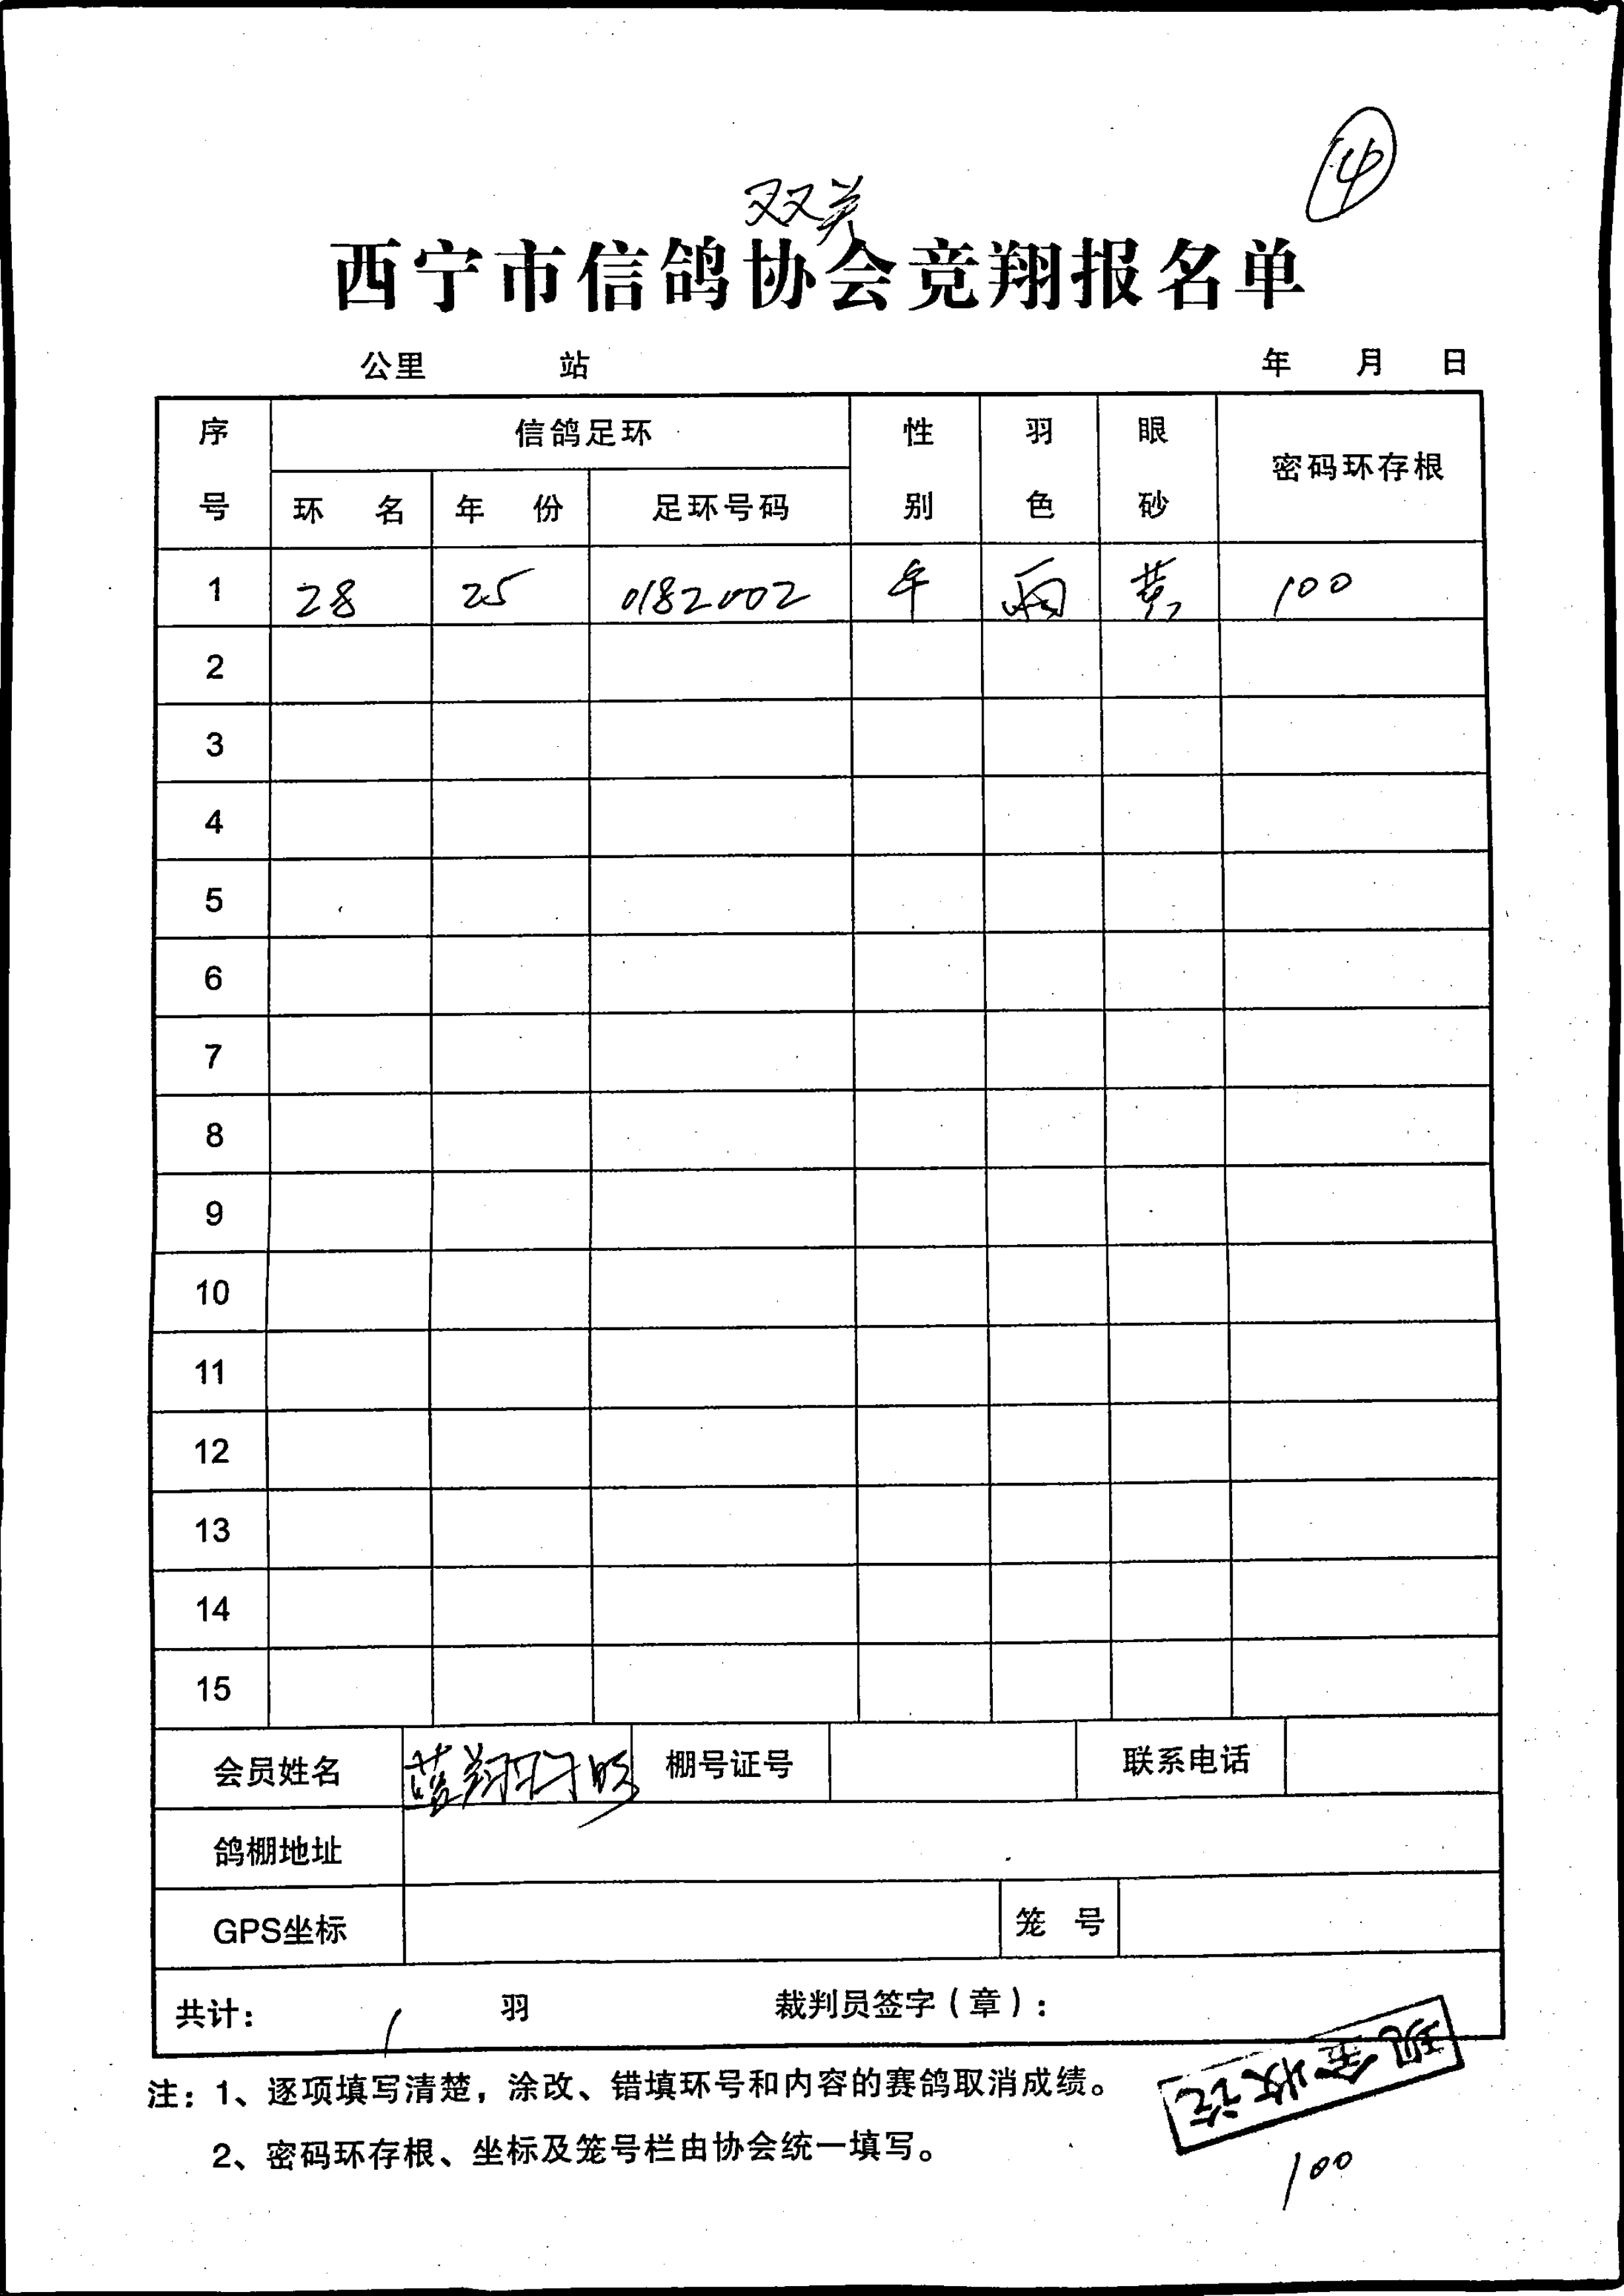 ④
双关
西宁市信鸽协会竞翔报名单
公里 站 年 月 日
序号 信鸽足环 性别 羽色 眼砂 密码环存根
环名 年份 足环号码
1 28 25 0182002 雨 黄 100
2
3
4
5
6
7
8
9
10
11
12
13
14
15
会员姓名 蓝翔 棚号证号 联系电话
鸽棚地址
GPS坐标 笼号
共计: 1 羽 裁判员签字(章):
注:1、逐项填写清楚,涂改、错填环号和内容的赛鸽取消成绩。
2、密码环存根、坐标及笼号栏由协会统一填写。
现金收讫
100